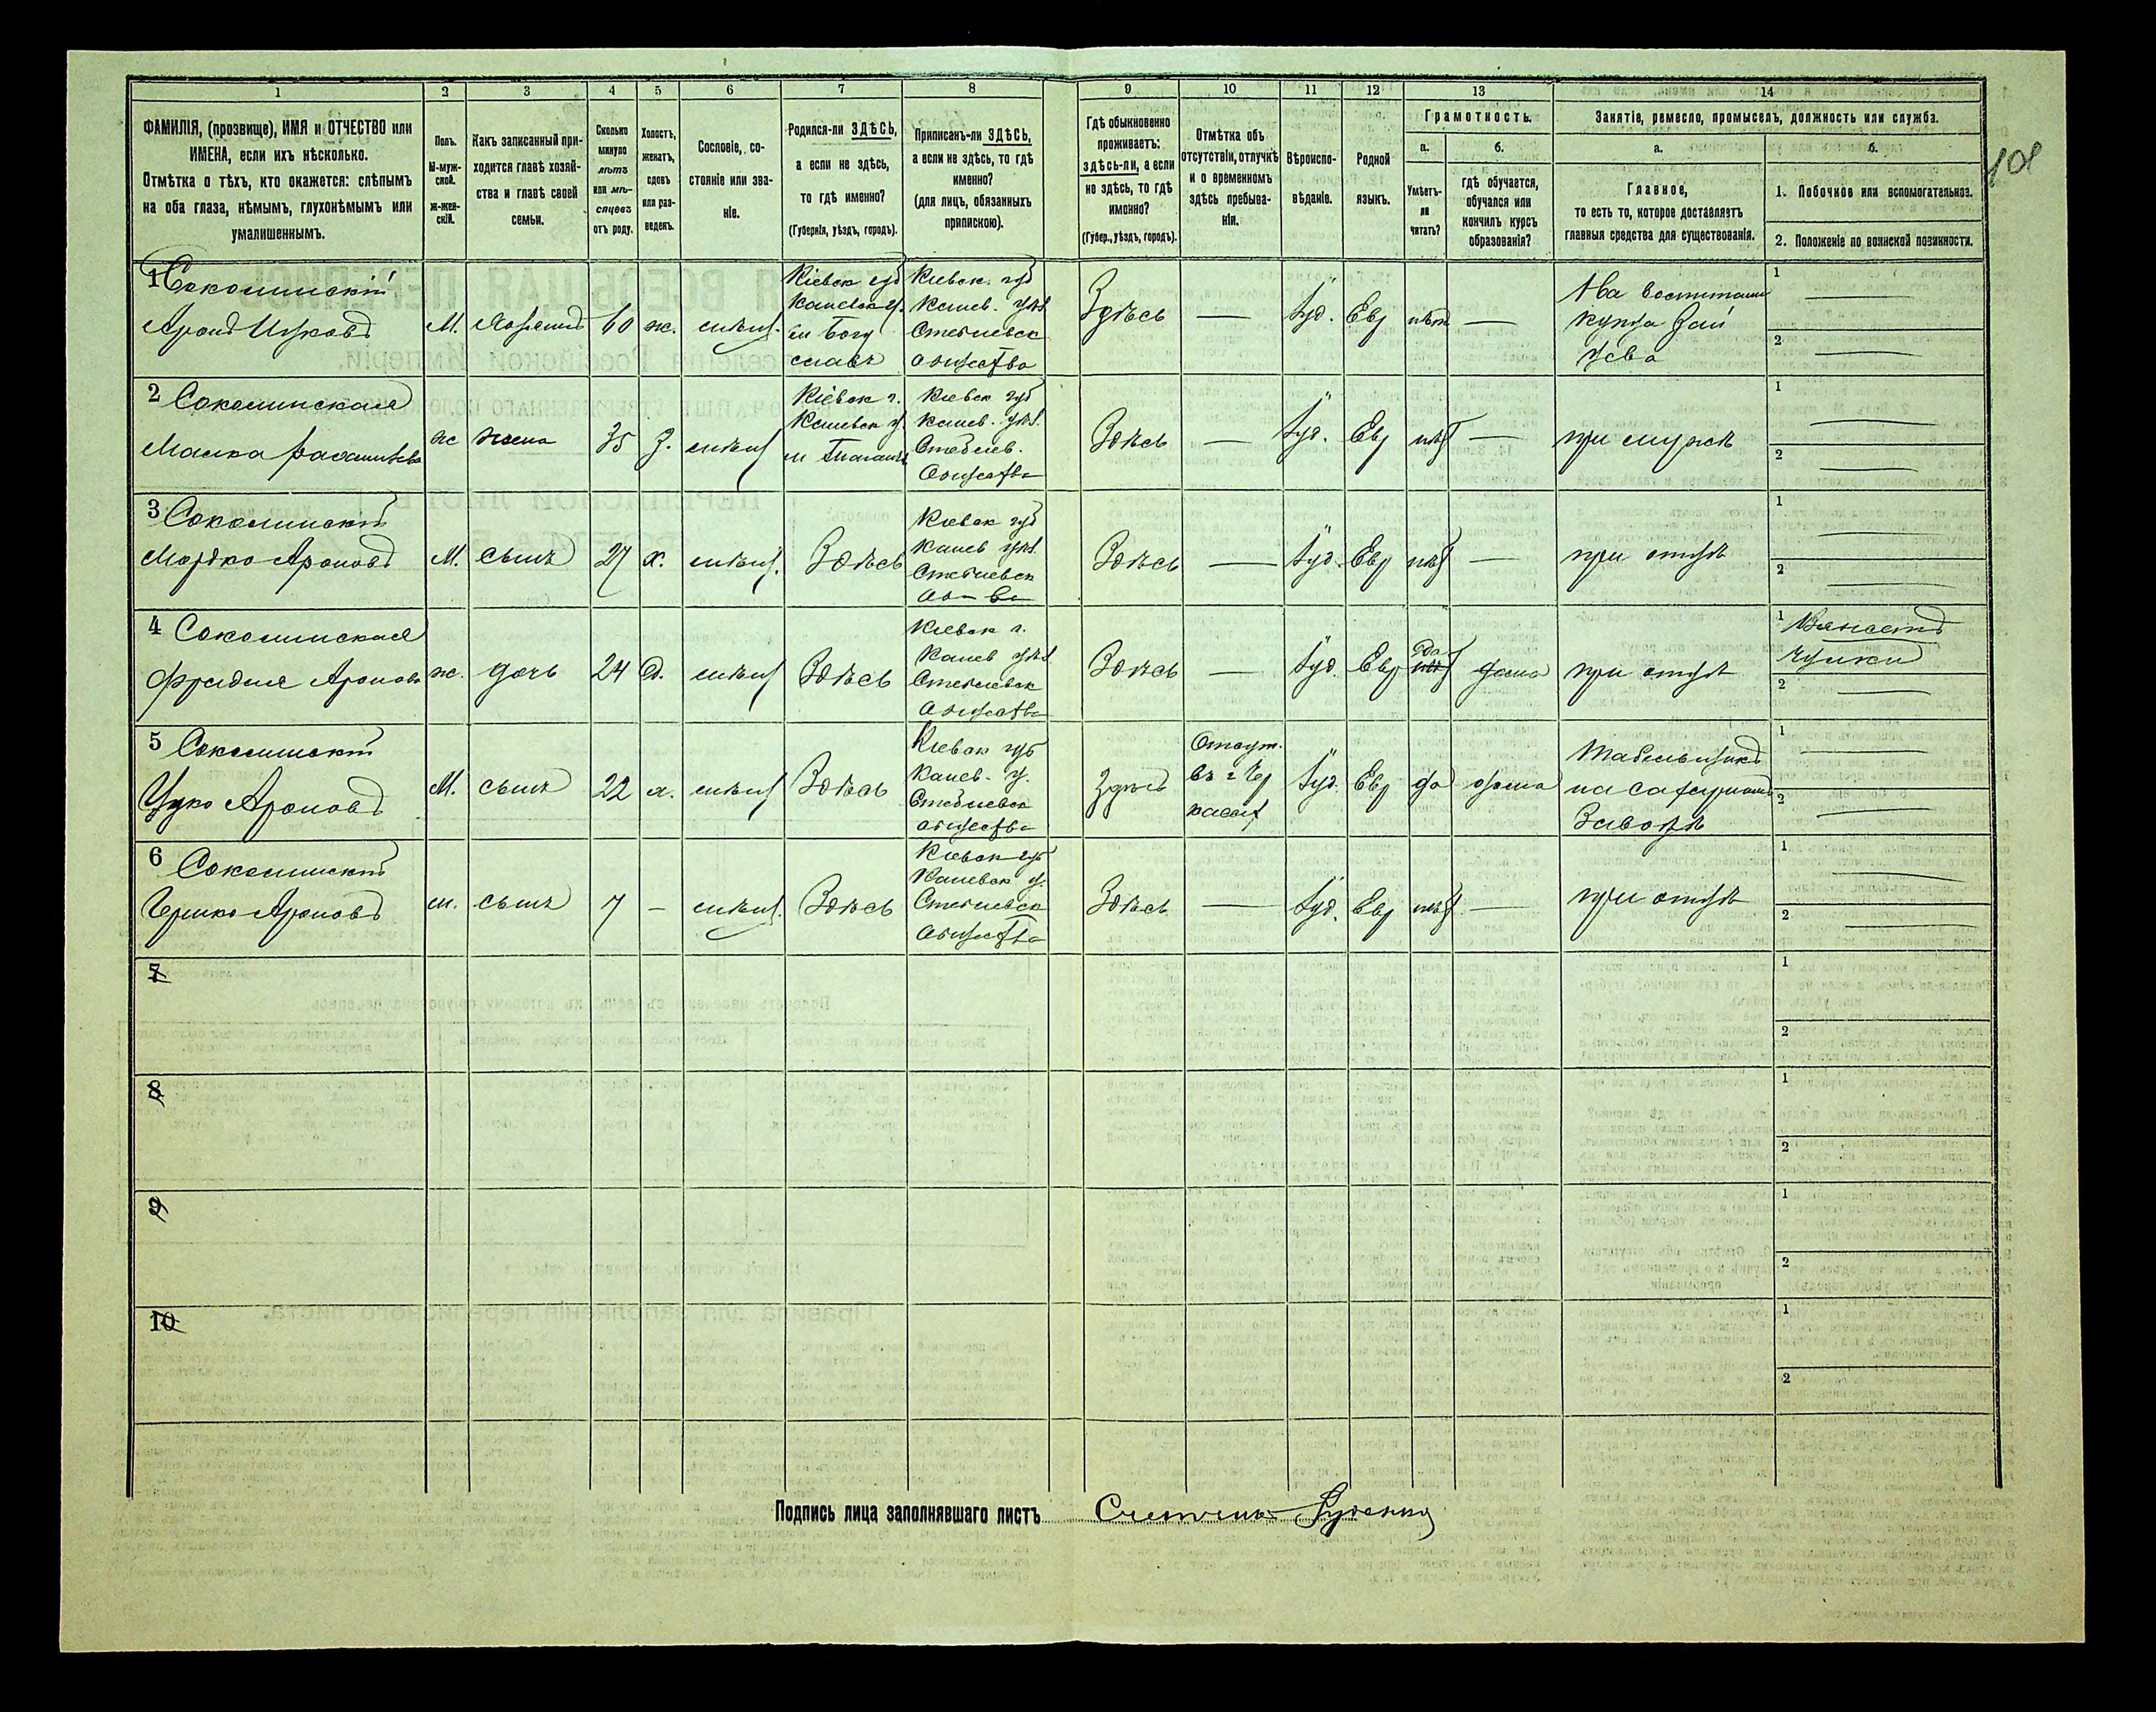 1 2 3 4 5 6 7 8 9 10 11 12 13 14
ФАМИЛІЯ, (прозвище), ИМЯ и ОТЧЕСТВО или
ИМЕНА, если ихъ нѣсколько.
Отмѣтка о тѣхъ, кто окажется: слѣпымъ
на оба глаза, нѣмымъ, глухонѣмымъ или
умалишеннымъ.
Полъ.
М-муж-
ской.
ж-жен-
скій.
Какъ записанный при-
ходится главѣ хозяй-
ства и главѣ своей
семьи.
Сколько
минуло
лѣтъ
или мѣ-
сяцевъ
отъ роду.
Холостъ,
женатъ,
вдовъ
или раз-
веденъ.
Сословіе, со-
стояніе или зва-
ніе.
Родился-ли ЗДѢСЬ,
а если не здѣсь,
то гдѣ именно?
(Губернія, уѣздъ, городъ).
Приписанъ-ли ЗДѢСЬ,
а если не здѣсь, то гдѣ
именно?
(для лицъ, обязанныхъ
припискою).
Гдѣ обыкновенно
проживаетъ:
здѣсь-ли, а если
не здѣсь, то гдѣ
именно?
(Губер., уѣздъ, городъ).
Отмѣтка объ
отсутствіи, отлучкѣ
и о временномъ
здѣсь пребыва-
ніи.
Вѣроиспо-
вѣданіе.
Родной
языкъ.
Грамотность.
а.
Умѣетъ-
ли
читать?
б.
гдѣ обучается,
обучался или
кончилъ курсъ
образованія?
Занятіе, ремесло, промыселъ, должность или служба.
а.
Главное,
то есть то, которое доставляетъ
главныя средства для существованія.
б.
1. Побочное или вспомогательное.
2. Положеніе по воинской повинности.
108
1 Соколинскій
Аронъ Ицковъ
М. хозяинъ 60 ж. мѣщ.
Кіевск губ
Каневск у.
м Богу
славъ
Кіевск. губ
Канев. уѣз.
Стеблевск
общества
Здѣсь — Іуд. Евр нѣт —
купца Зай
цева
1 —
2 —
2 Соколинская
Малка
ж жена 35 З. мѣщ
Кіевск г.
Каневск у.
м Таганча
Кіевск губ
Канев. уѣз.
Стеблев.
Общества
Здѣсь — Іуд. Евр нѣт — при мужѣ
1 —
2 —
3 Соколинскій
Мордко Ароновъ
М. сынъ 27 х. мѣщ. Здѣсь
Кіевск губ
Канев уѣз.
Стеблевск
об-ва
Здѣсь — Іуд. Евр нѣт — при отцѣ
1 —
2 —
4 Соколинская
Фрейдля Аронова
ж. дочь 24 д. мѣщ Здѣсь
Кіевск г.
Канев уѣз
Стеблевск
Общества
Здѣсь — Іуд. Евр да дома при отцѣ
1 Вяжетъ
чулки
2 —
5 Соколинскій
Ицко Ароновъ
М. сынъ 22 х. мѣщ Здѣсь
Кіевск губ
Канев. у.
Стеблевск
общества
Здѣсь
Отсут.
въ г Чер
касах
Іуд. Евр да дома
Табельщикъ
на сахарномъ
Заводѣ
1 —
2 —
6 Соколинскій
Гершко Ароновъ
м. сынъ 7 — мѣщ. Здѣсь
Кіевск губ
Каневск у.
Стеблевск
общества
Здѣсь — Іуд. Евр нѣт — при отцѣ
1 —
2 —
7
1
2
8
1
2
9
1
2
10
1
2
Подпись лица заполнявшаго листъ